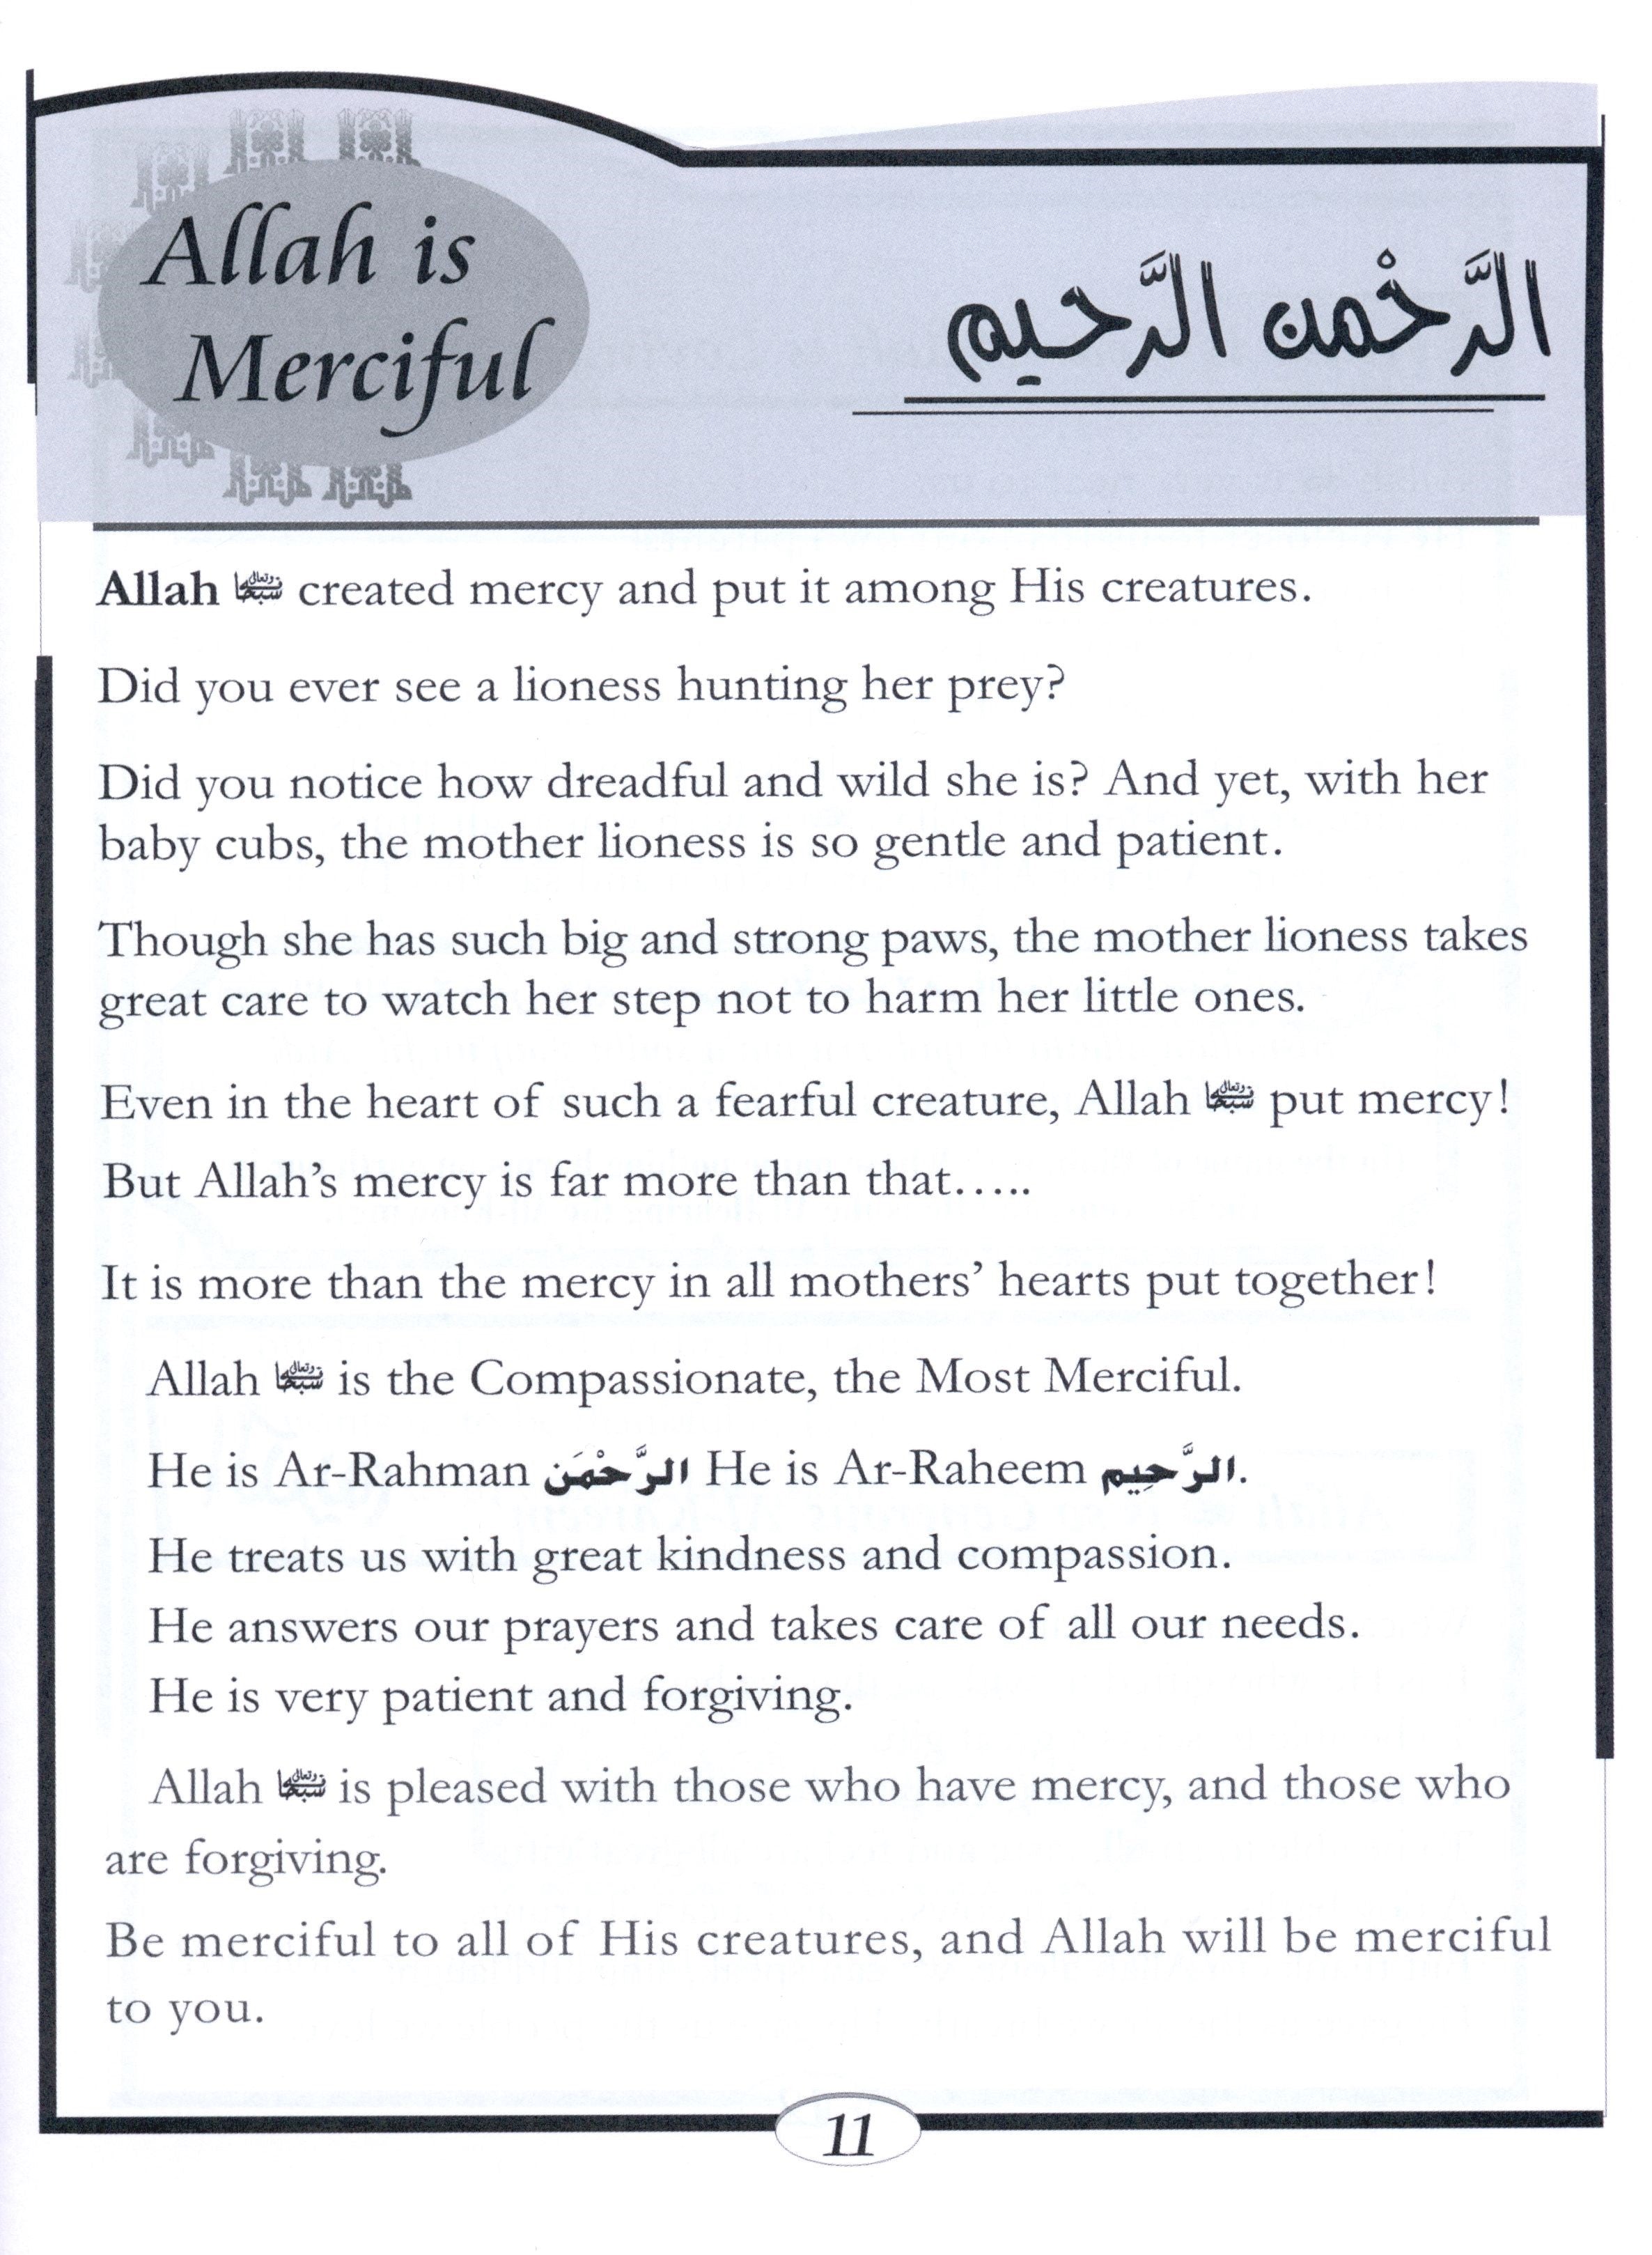 Allah is
Merciful
الرَّحْمن الرَّحيم
Allah سبحانه وتعالى created mercy and put it among His creatures.
Did you ever see a lioness hunting her prey?
Did you notice how dreadful and wild she is? And yet, with her
baby cubs, the mother lioness is so gentle and patient.
Though she has such big and strong paws, the mother lioness takes
great care to watch her step not to harm her little ones.
Even in the heart of such a fearful creature, Allah سبحانه وتعالى put mercy!
But Allah’s mercy is far more than that.....
It is more than the mercy in all mothers’ hearts put together!
Allah سبحانه وتعالى is the Compassionate, the Most Merciful.
He is Ar-Rahman الرَّحْمَن He is Ar-Raheem الرَّحِيم.
He treats us with great kindness and compassion.
He answers our prayers and takes care of all our needs.
He is very patient and forgiving.
Allah سبحانه وتعالى is pleased with those who have mercy, and those who
are forgiving.
Be merciful to all of His creatures, and Allah will be merciful
to you.
11